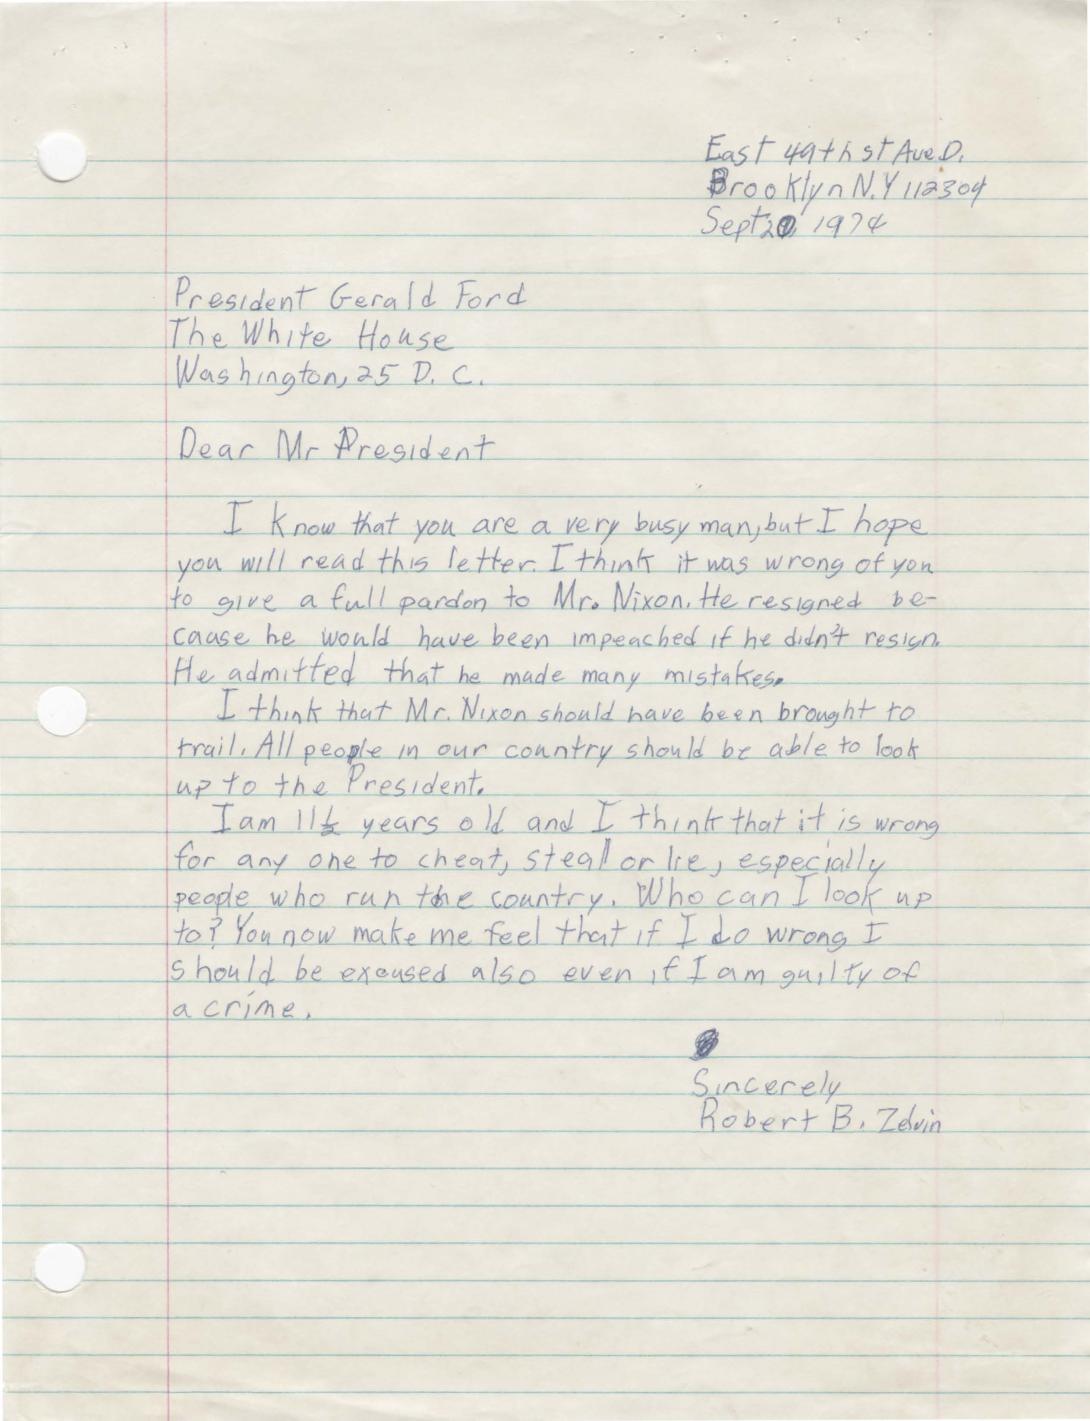 East 49th st Ave D.
Brooklyn N.Y 112304
Sept 20, 1974
President Gerald Ford
The White House
Washington, 25 D. C.
Dear Mr President
I know that you are a very busy man, but I hope
you will read this letter. I think it was wrong of you
to give a full pardon to Mr. Nixon. He resigned be-
cause he would have been impeached if he didn't resign.
He admitted that he made many mistakes.
I think that Mr. Nixon should have been brought to
trail. All people in our country should be able to look
up to the President.
I am 11½ years old and I think that it is wrong
for any one to cheat, steal or lie, especially
people who run the country. Who can I look up
to? You now make me feel that if I do wrong I
should be excused also even if I am guilty of
a crime.
Sincerely
Robert B. Zelvin